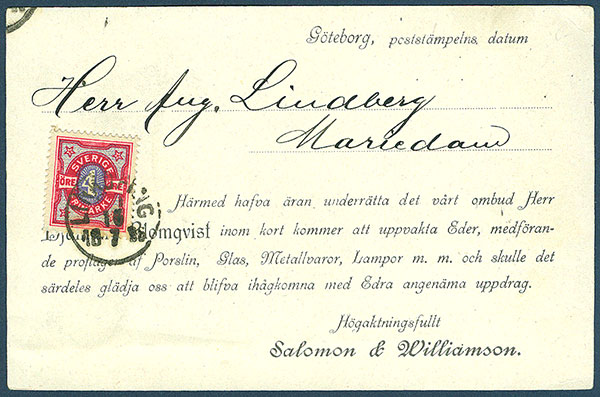 Göteborg, poststämpelns datum
Herr Aug. Lindberg
Mariedam
SVERIGE
ÖRE 4 ÖRE
FRIMÄRKE
Härmed hafva äran underrätta det vårt ombud Herr
Blomqvist inom kort kommer att uppvakta Eder, medföran-
de proflager af Porslin, Glas, Metallvaror, Lampor m. m. och skulle det
särdeles glädja oss att blifva ihågkomna med Edra angenäma uppdrag.
Högaktningsfullt
Salomon & Williamson.